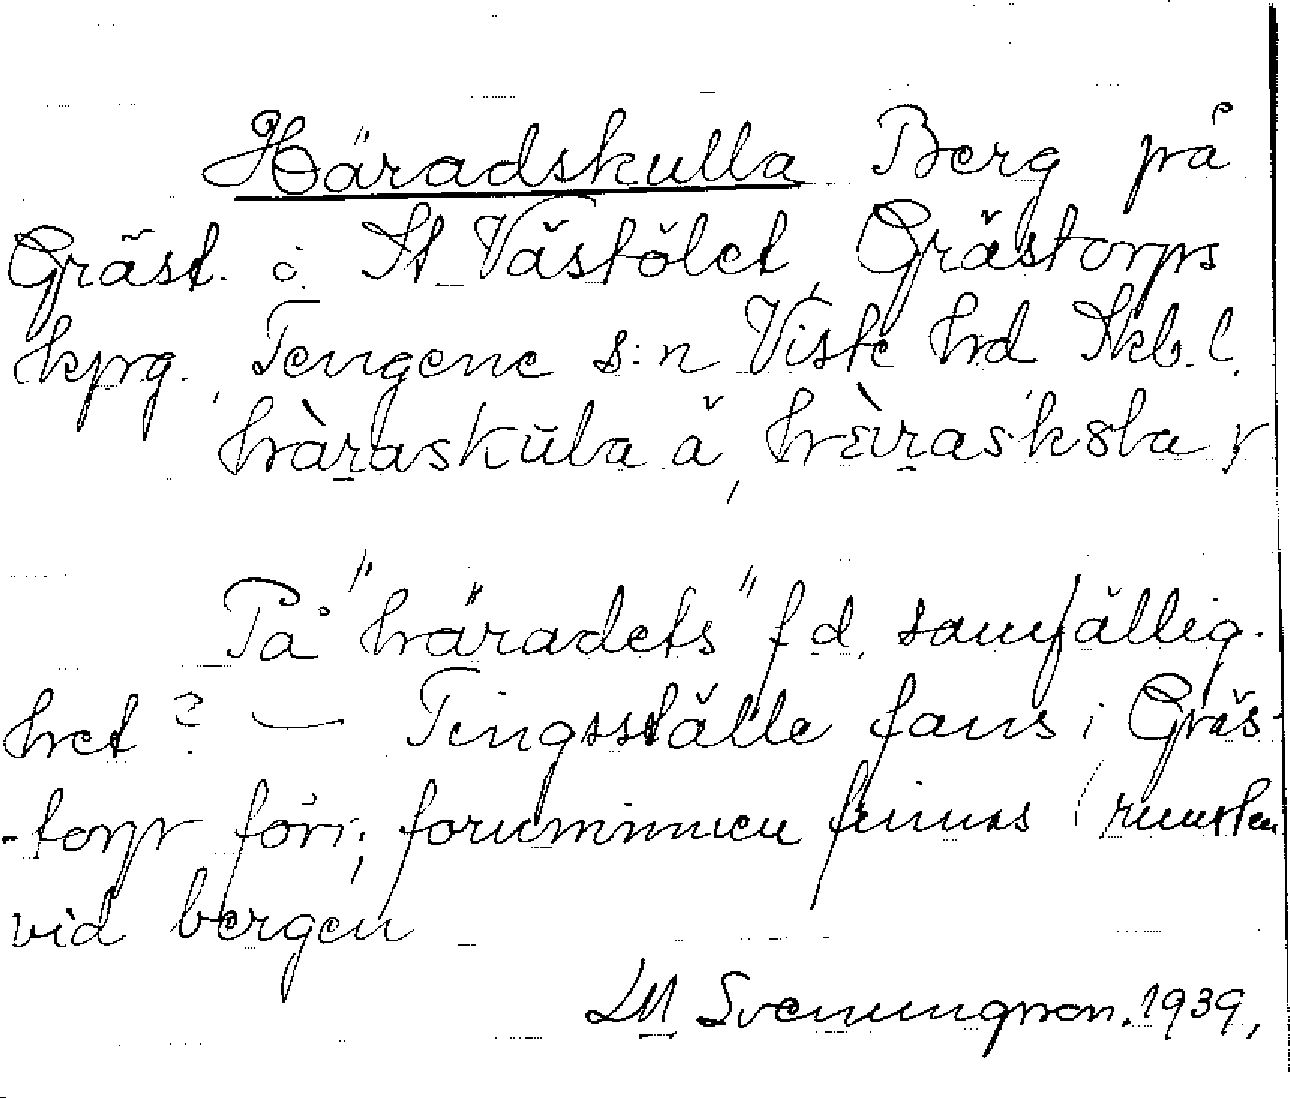 Häradskulla Berg på
Gräst. o. St Västölet, Grästorps
kpg., Tengene s:n Viste hrd Skb. l.
hàraskŭla å, hàraskola
På "häradets" f d. samfällig-
het? — Tingsställe fans i Gräs-
-torp förr; fornminnen finnas (runsten
vid bergen
LM Svenungsson. 1939,